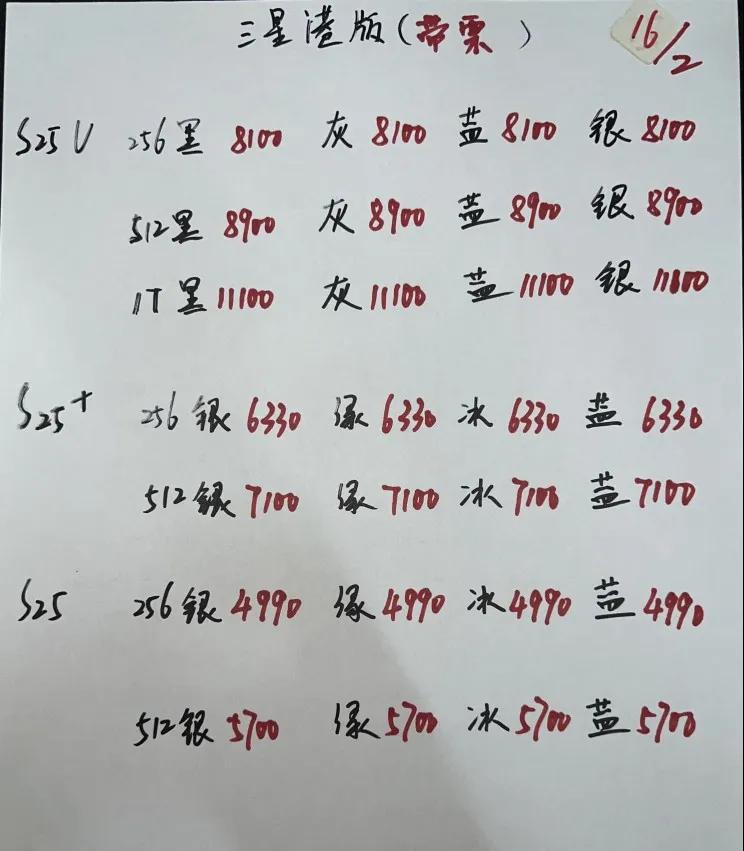 三星港版(带票) 16/2
S25U 256黑8100 灰8100 蓝8100 银8100
512黑8900 灰8900 蓝8900 银8900
1T黑11100 灰11100 蓝11100 银11100
S25+ 256银6330 绿6330 冰6330 蓝6330
512银7100 绿7100 冰7100 蓝7100
S25 256银4990 绿4990 冰4990 蓝4990
512银5700 绿5700 冰5700 蓝5700